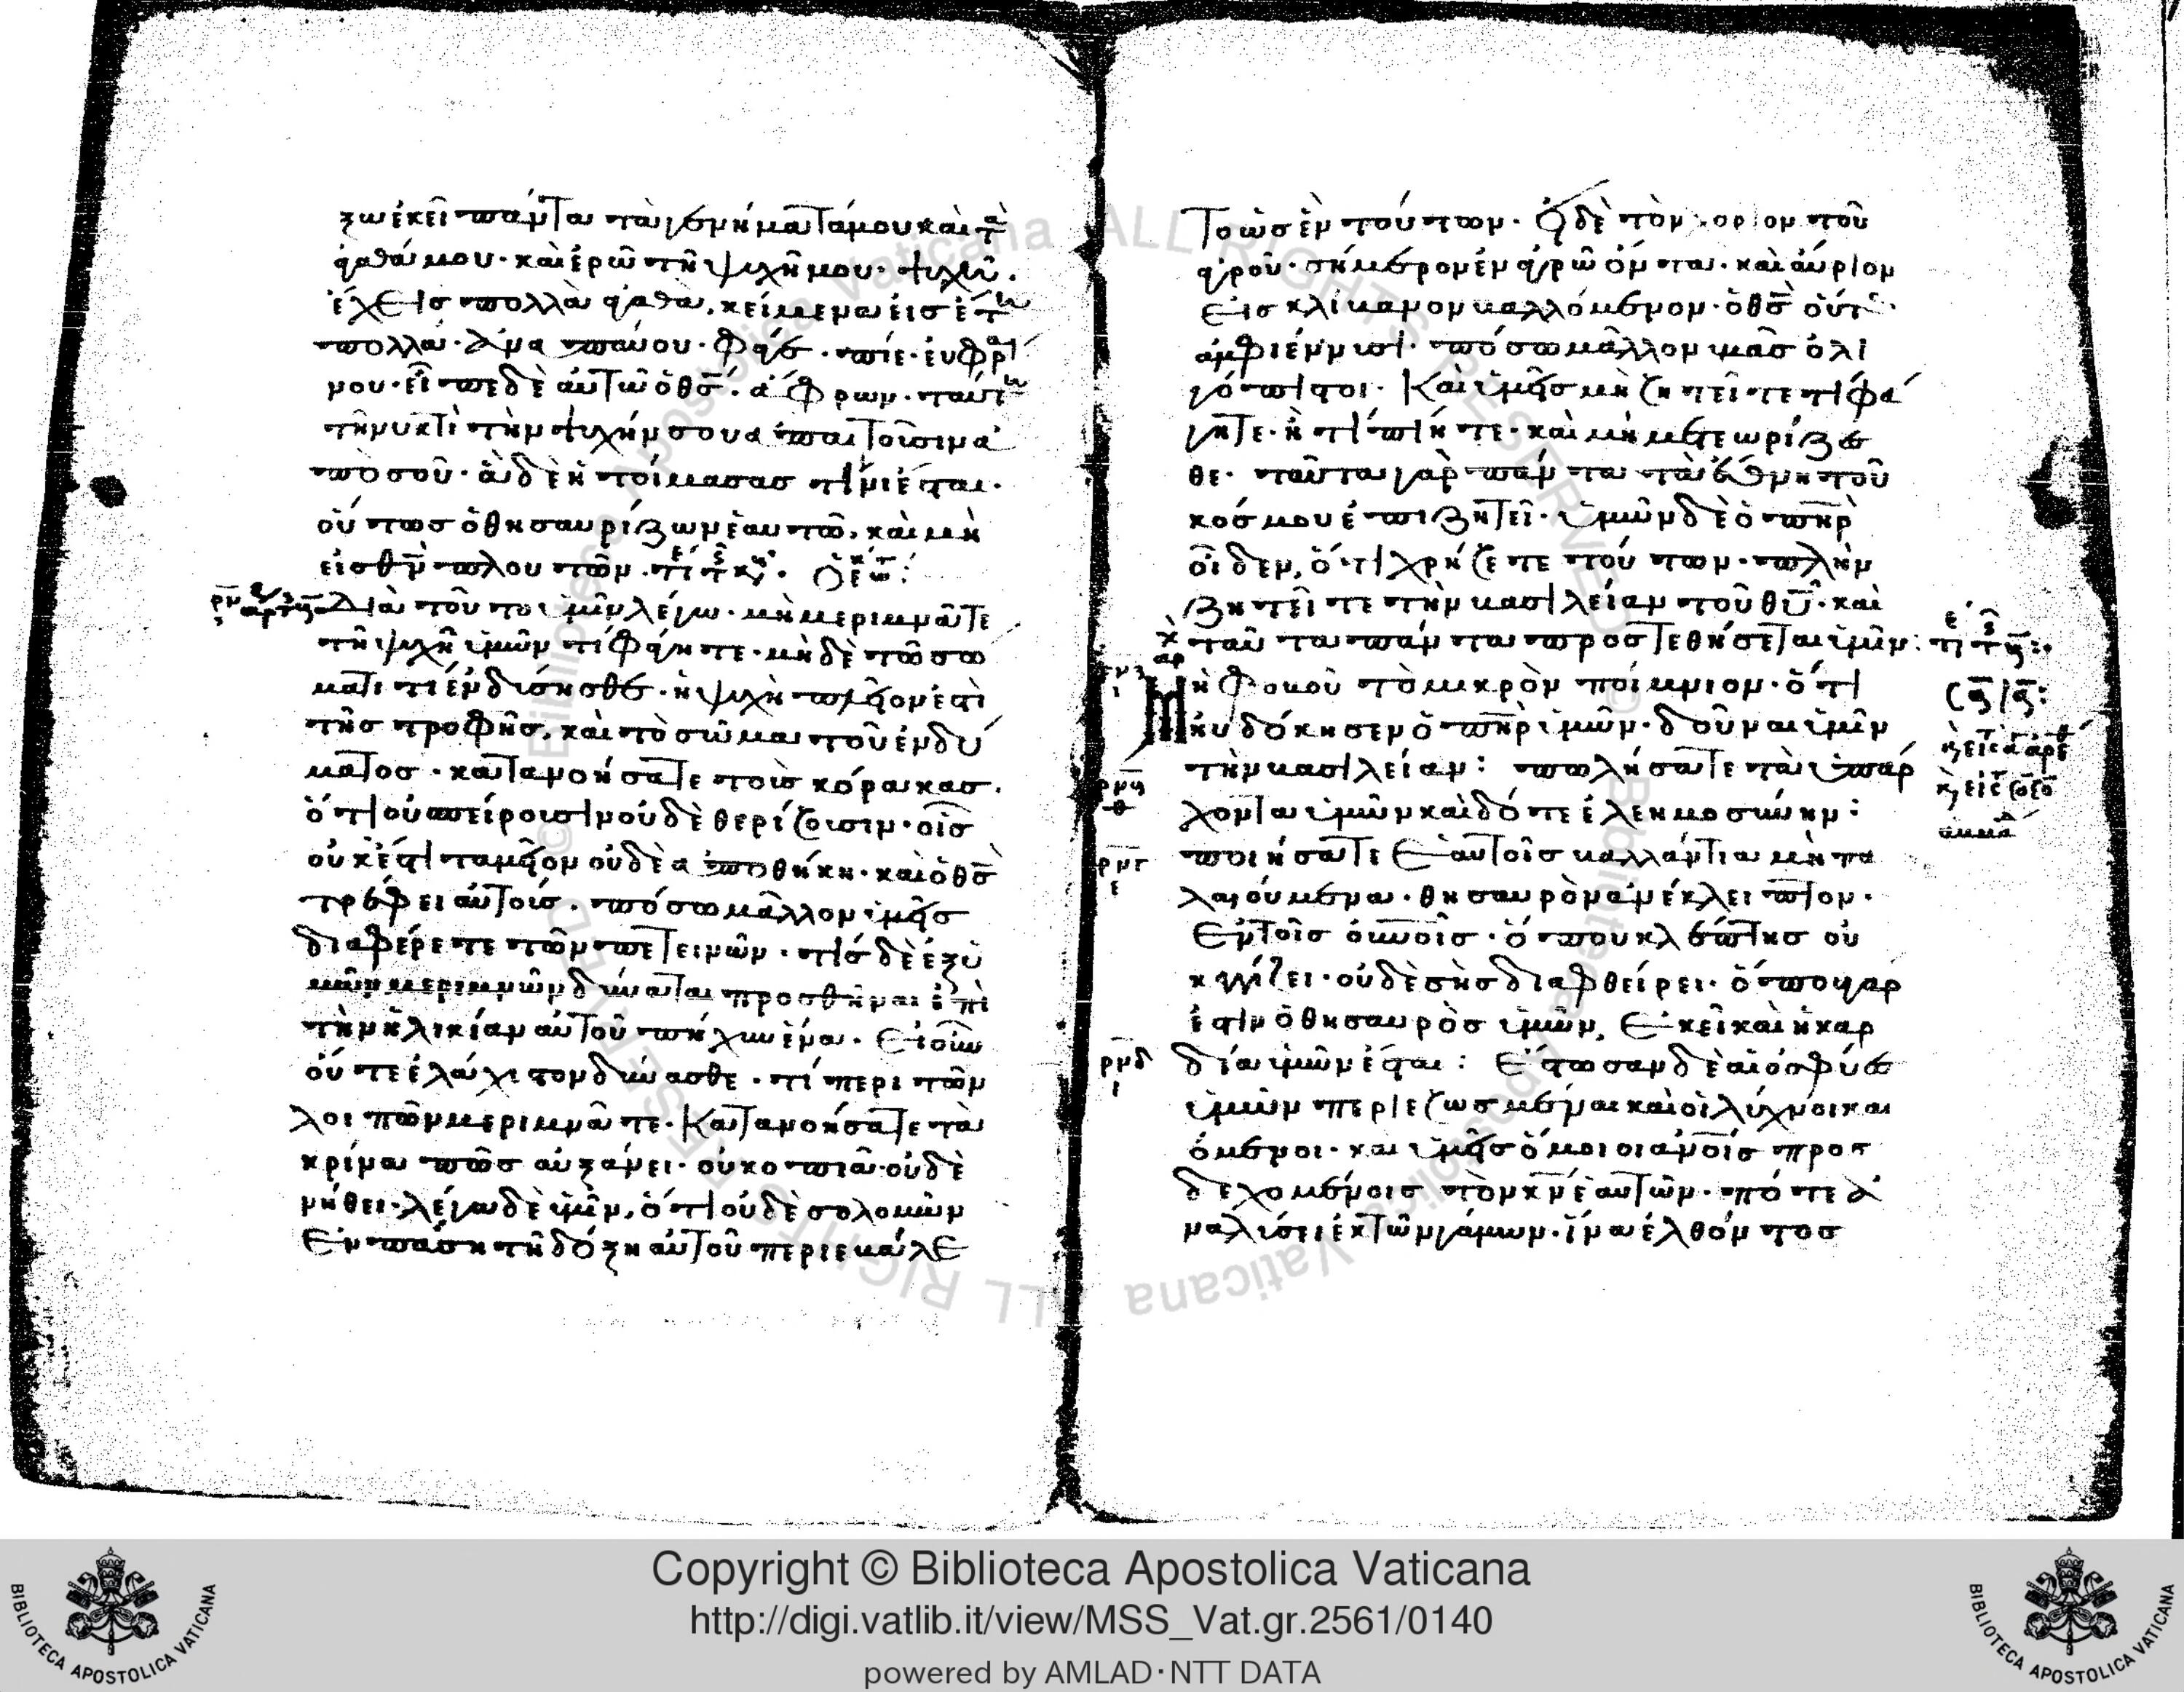 ξω ἐκεῖ πάντα τὰ γενήματά μου καὶ τὰ
ἀγαθά μου· καὶ ἐρῶ τῆ ψυχῆ μου· ψυχὴ.
ἔχεις πολλὰ ἀγαθὰ, κείμενα εἰς ἔτη
πολλά· ἀναπαύου· φάγε· πίε· εὐφραί
νου· εἶπε δὲ αὐτῶ ὁ θς· ἄφρων· ταύτη
τῆ νυκτὶ τὴν ψυχήν σου ἀπαιτοῦσιν ἀ
πὸ σοῦ· ἃ δὲ ἡτοίμασας τίνι ἔσται·
οὕτως ὁ θησαυρίζων ἑαυτῶ, καὶ μὴ
εἰς θν πλουτῶν
Διὰ τοῦτο ὑμῖν λέγω· μὴ μεριμνᾶτε
τῆ ψυχῆ ὑμῶν τί φάγητε· μὴ δὲ τῶ σώ
ματι τί ἐνδύσησθε· ἡ ψυχὴ πλεῖον ἐστὶ
τῆς τροφῆς, καὶ τὸ σῶμα τοῦ ἐνδύ
ματος· κατανοήσατε τοὺς κόρακας·
ὅτι οὐ σπείρουσιν οὐδὲ θερίζουσιν· οἷς
οὐκ ἔστι ταμεῖον οὐδὲ ἀποθήκη· καὶ ὁ θς
τρέφει αὐτούς· πόσω μᾶλλον ὑμεῖς
διαφέρετε τῶν πετεινῶν· τίς δὲ ἐξ ὑ
μῶν μεριμνῶν δύναται προσθῆναι ἐπὶ
τὴν ἡλικίαν αὐτοῦ πῆχυν ἕνα· Εἰ οὖν
οὔτε ἐλάχιστον δύνασθε· τί περι τῶν
λοιπῶν μεριμνᾶτε· Κατανοήσατε τὰ
κρίνα πῶς αὐξάνει· οὐ κοπιᾶ· οὐδὲ
νήθει· λέγω δὲ ὑμῖν, ὅτι οὐδὲ σολομὼν
Ἐν πάση τῆ δόξη αὐτοῦ περιεβάλε
Το ὡς ἓν τούτων· Εἰ δὲ τὸν χόρτον τοῦ
ἀγροῦ· σήμερον ἐν ἀγρῶ ὄντα· καὶ αὔριον
Εἰς κλίβανον βαλλόμενον· ὁ θς οὕτως
ἀμφιέννυσι· πόσω μᾶλλον ὑμᾶς ὀλι
γόπιστοι· Καὶ ὑμεῖς μὴ ζητεῖτε τί φά
γητε· ἢ τί πίητε· καὶ μὴ μετεωρίζεσ
θε· ταῦτα γὰρ πάντα τὰ ἔθνη τοῦ
κόσμου ἐπιζητεῖ· ὑμῶν δὲ ὁ πηρ
οἶδεν, ὅτι χρήζετε τούτων· πλὴν
ζητεῖτε τὴν βασιλείαν τοῦ θυ· καὶ
ταῦτα πάντα προστεθήσεται ὑμῖν:
Μὴ φοβοῦ τὸ μικρὸν ποίμνιον· ὅτι
ηὐδόκησεν ὁ πηρ ὑμῶν· δοῦναι ὑμῖν
τὴν βασιλείαν: πωλήσατε τὰ ὑπάρ
χοντα ὑμῶν καὶ δότε ἐλεημοσύνην:
ποιήσατε Ἑαυτοῖς βαλλάντια μὴ πα
λαιούμενα· θησαυρὸν ἀνέκλειπτον·
Ἐν τοῖς οὐνοῖς· ὅπου κλέπτης οὐ
κ ἐγγίζει· οὐδὲ σὴς διαφθείρει· ὅπου γαρ
ἐστιν ὁ θησαυρὸς ὑμῶν, Ἐκεῖ καὶ ἡ καρ
ρνδ δία ὑμῶν ἔσται: Ἔστωσαν δὲ αἱ ὀσφύες
ὑμῶν περιεζωσμέναι καὶ οἱ λύχνοι και
όμενοι· και ὑμεῖς ὅμοιοι ἀνοις προσ
δεχομένοις τὸν κν ἑαυτῶν· πότε ἀ
ναλύσει ἐκ τῶν γάμων· ἵνα ἐλθόντος
Copyright © Biblioteca Apostolica Vaticana
http://digi.vatlib.it/view/MSS_Vat.gr.2561/0140
powered by AMLAD·NTT DATA
BIBLIOTECA APOSTOLICA VATICANA
BIBLIOTECA APOSTOLICA VATICANA